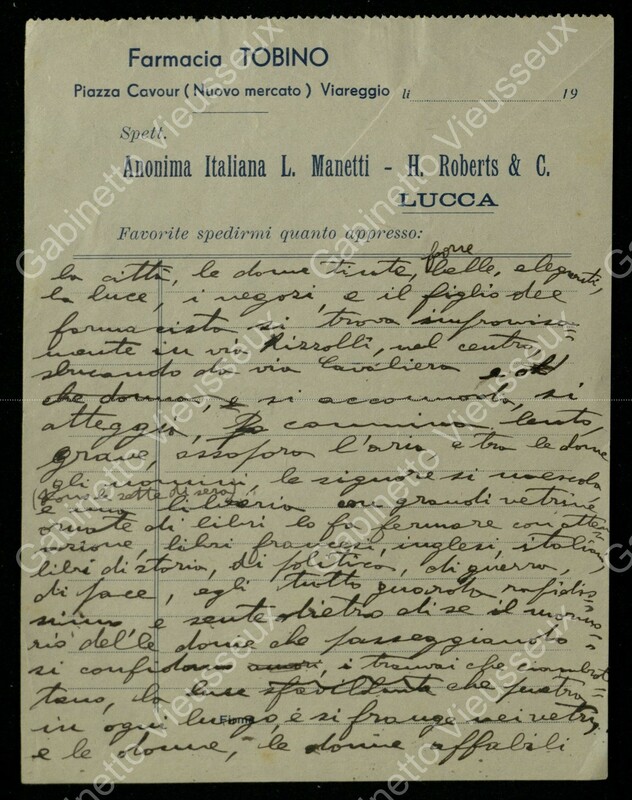 Farmacia TOBINO
Piazza Cavour (Nuovo mercato) Viareggio lì 19
Spett.
Anonima Italiana L. Manetti - H. Roberts & C.
LUCCA
Favorite spedirmi quanto appresso:
forse
la città, le donne tinte, belle, eleganti,
la luce, i negozi, e il figlio del
farmacista si trova improvvisa=
mente in via Rizzolli, nel centro,
sbucando da via Cavaliera
che donna, e si accomoda, si
atteggia, cammina lento,
grave, assapora l'aria e tra le donne
gli uomini, le signore si mescola
(sono le sette di sera)
e una libreria con grandi vetrine
ornate di libri lo fa fermare con atten=
zione, libri francesi, inglesi, italiani,
libri di storia, di politica, di guerra,
di pace, egli tutto guarda rapidis=
simo e sente dietro di se il mormo=
rio delle donne che passeggiando
si confidano amori, i tranvai che
tano, la luce sfavillante che penetra
in ogni luogo, e si frange nei vetri,
Firma
e le donne, le donne affabili
Gabinetto Vieusseux